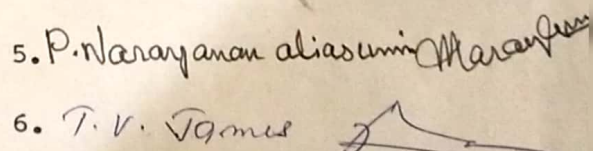 5. P. Narayanan alias unni
6. T. V. James